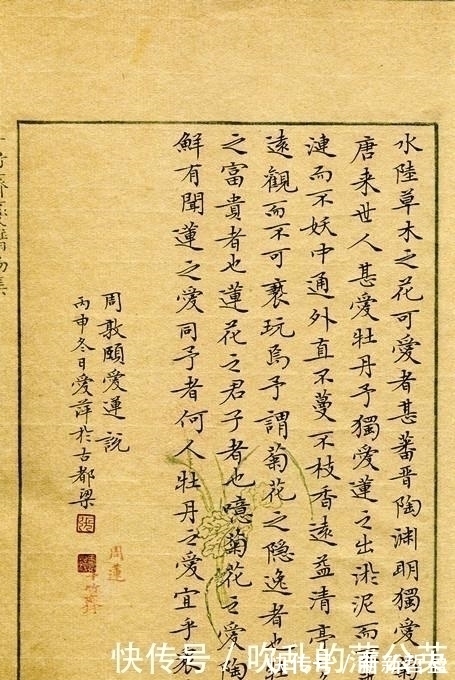 水陸草木之花可愛者甚蕃晋陶渊明獨愛菊
唐来世人甚愛牡丹予獨愛蓮之出淤泥而
漣而不妖中通外直不蔓不枝香遠益清亭
遠觀而不可褻玩焉予謂菊花之隐逸者也牡
之富貴者也蓮花之君子者也噫菊花之愛陶
鮮有聞蓮之愛同予者何人牡丹之愛宜乎衆
周敦頤愛蓮説
丙申冬日愛萍於古都梁
周蓮
快传号/吹乱的蒲公英